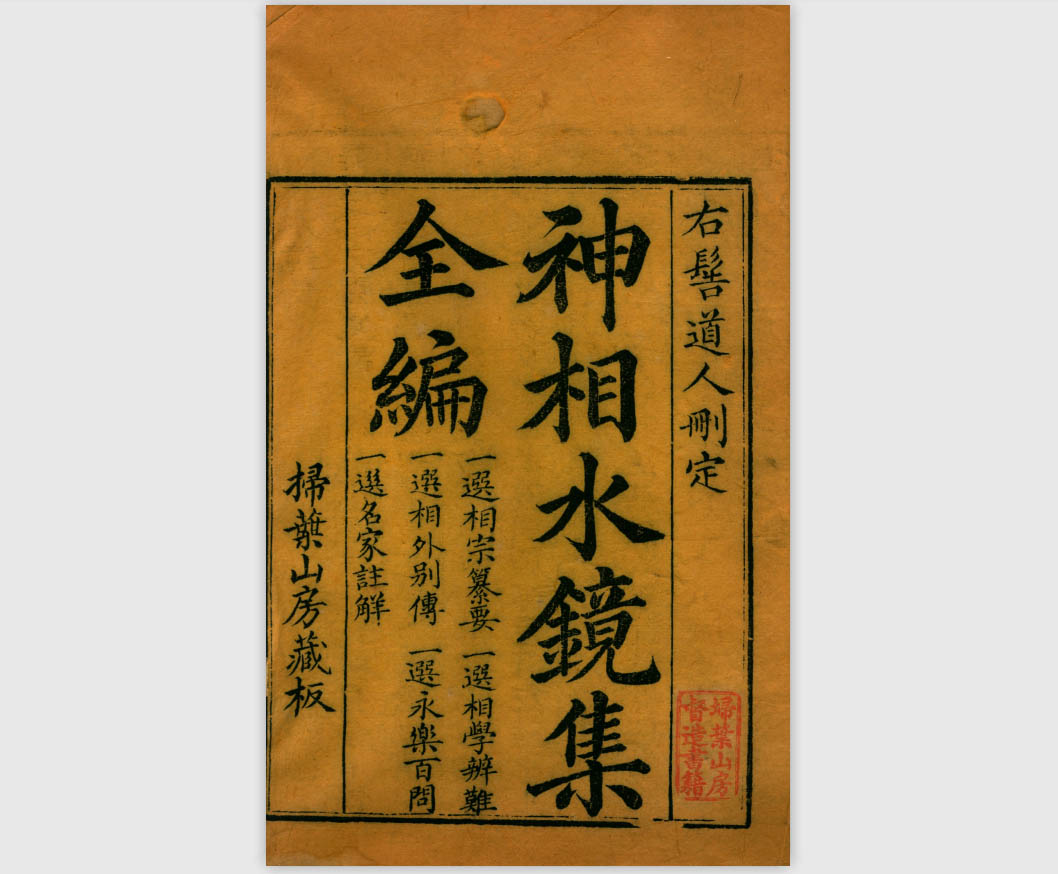 右髻道人刪定
神相水鏡集
全編
一選相宗纂要
一選相學辨難
一選相外別傳
一選永樂百問
一選名家註解
掃葉山房藏板
掃葉山房
督造書籍